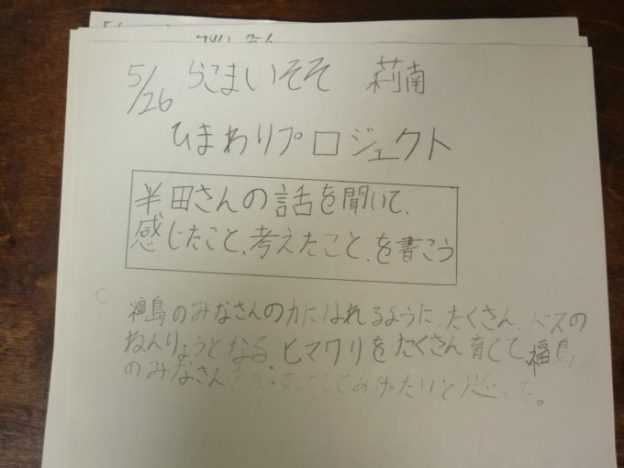 5/26 らこまいそそ 莉南
ひまわりプロジェクト
半田さんの話を聞いて、
感じたこと、考えたこと、を書こう
福島のみなさんの力になれるように、たくさん、バスの
ねんりょうとなる、ヒマワリをたくさん育てて、福島
のみなさんを元気にしてあげたいと思った。